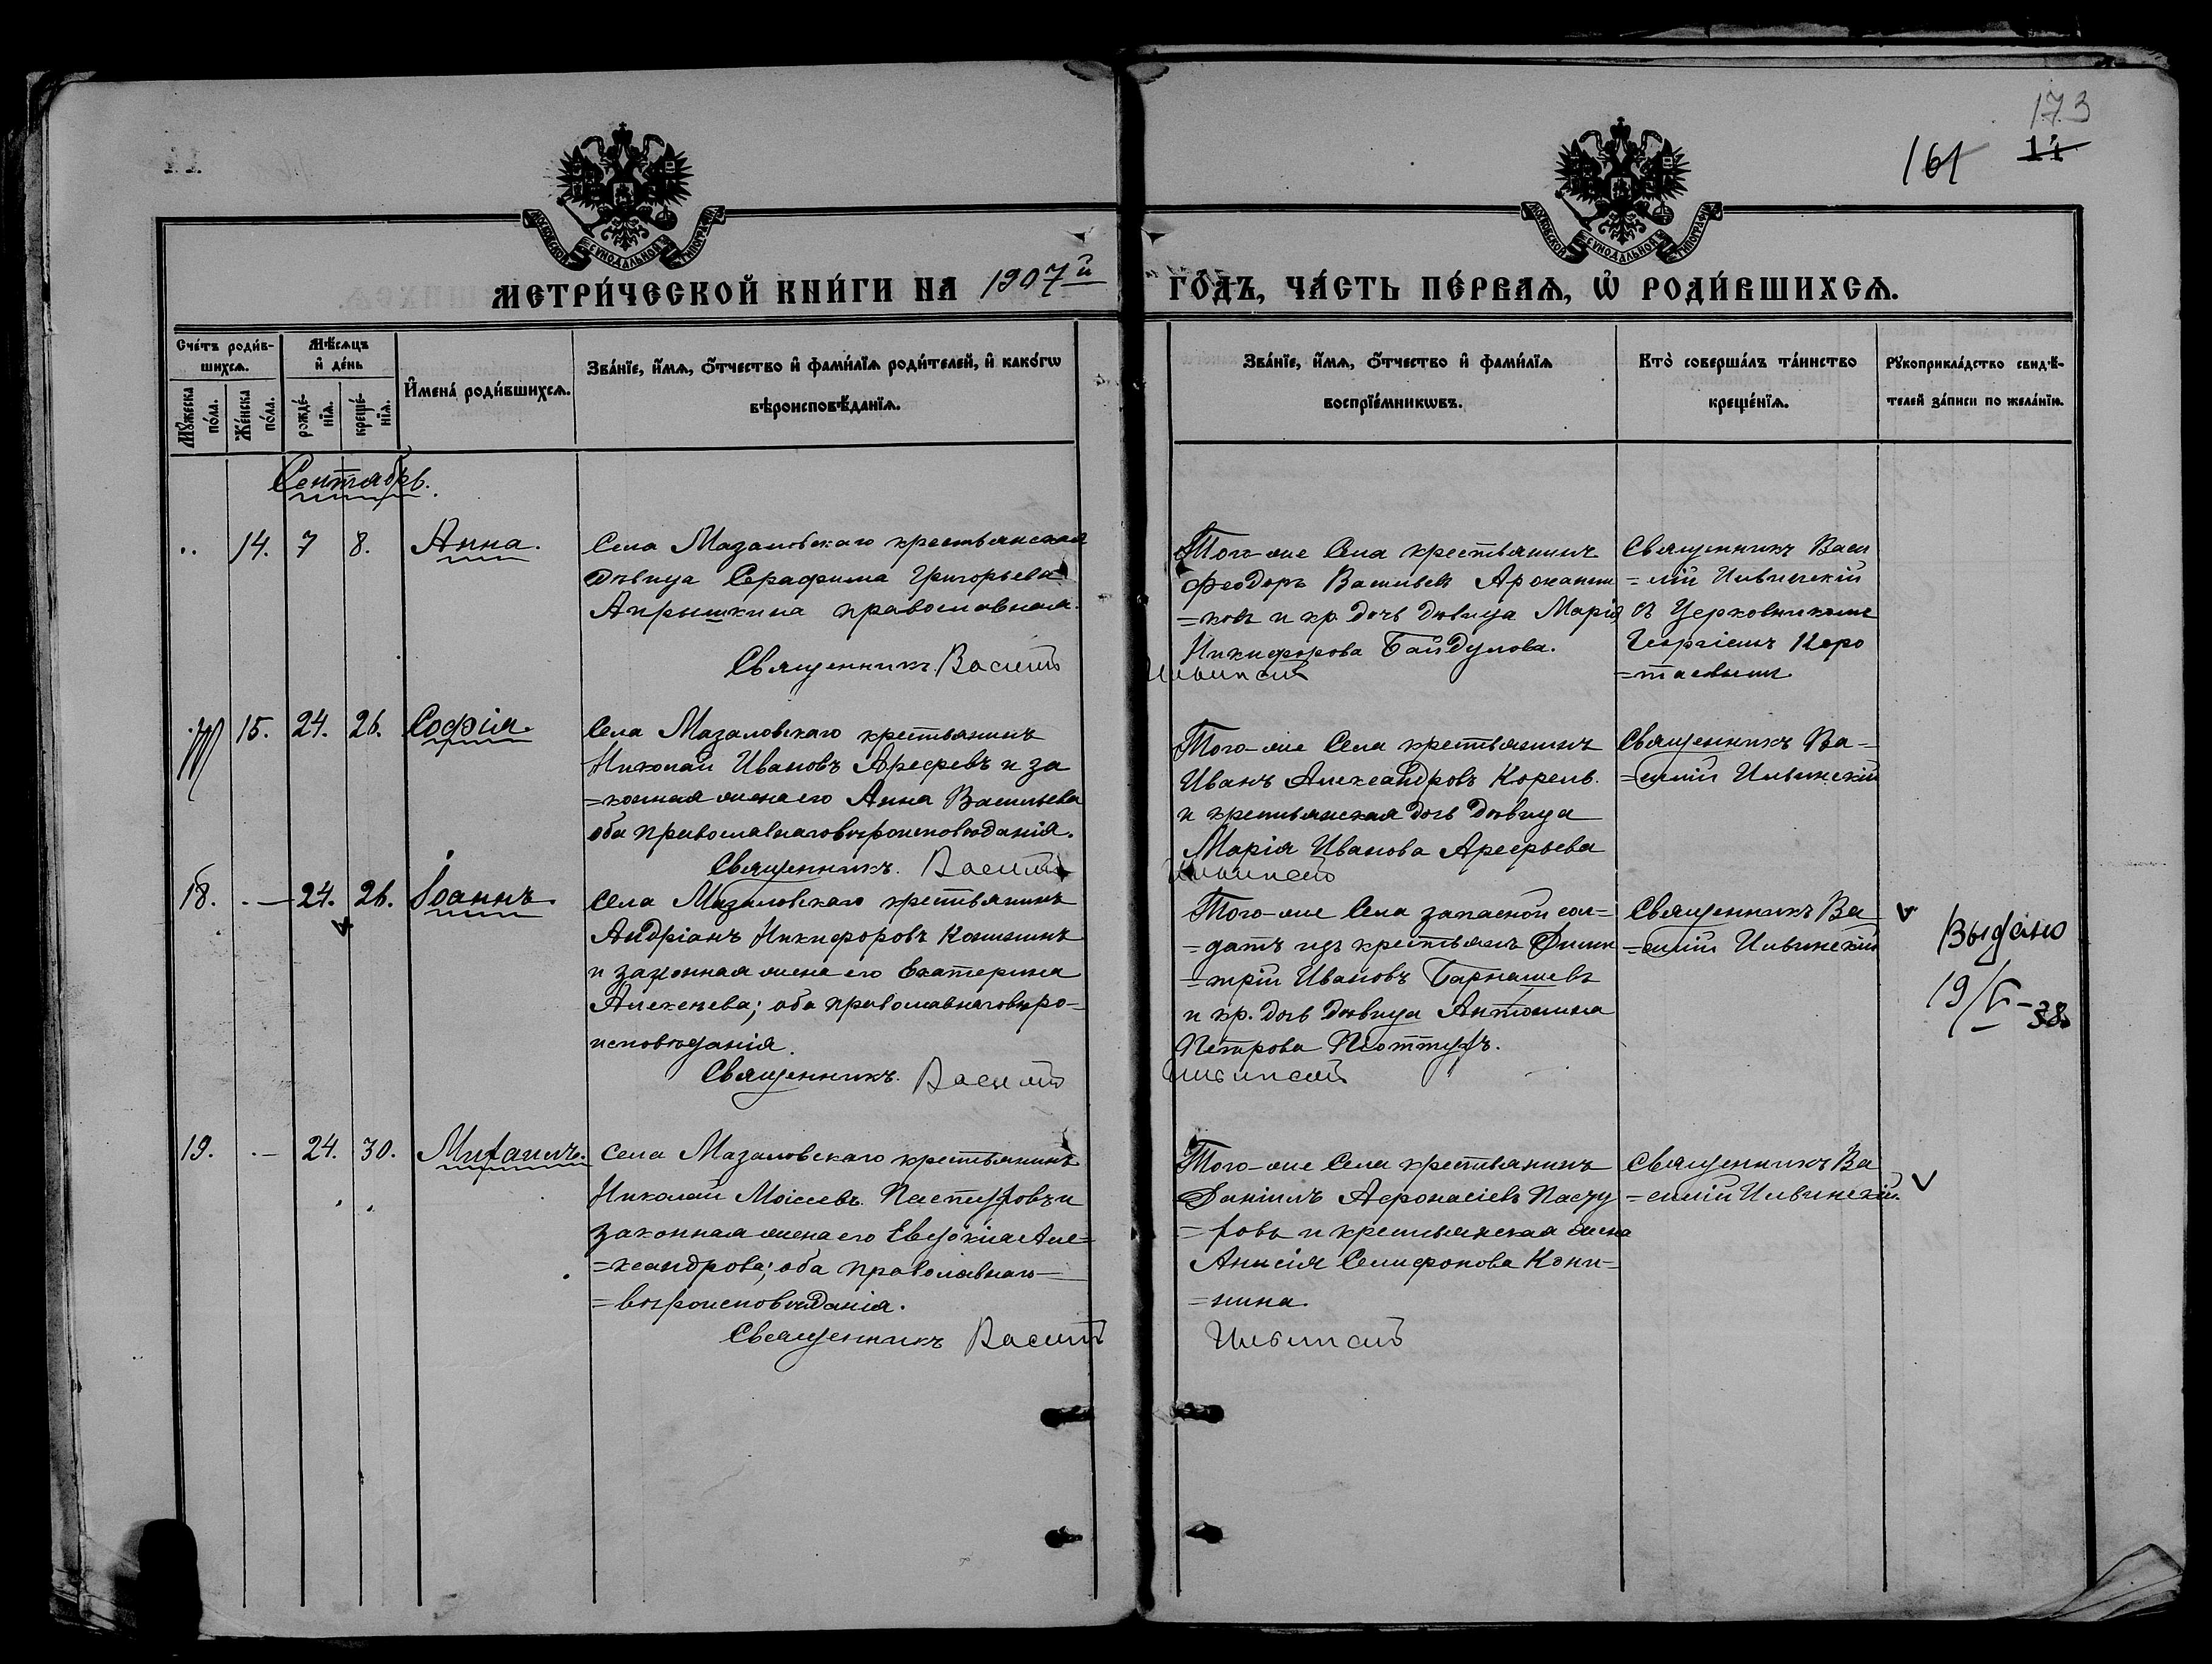 11.
173
161 11
МОСКОВСКОЙ СУНОДАЛЬНОЙ ТИПОГРАФІИ
МОСКОВСКОЙ СУНОДАЛЬНОЙ ТИПОГРАФІИ
МЕТРИ́ЧЕСКОЙ КНИ́ГИ НА 1907й ГО́ДЪ, ЧА́СТЬ ПЕ́РВАѦ, Ѡ҆ РОДИ́ВШИХСѦ.
Сче́тъ роди́в-
шихсѧ.
Мꙋ́жеска по́ла.
Же́нска по́ла.
Мѣ́сѧцъ
и҆ де́нь
рожде́-
нїѧ.
креще́-
нїѧ.
И҆мена̀ роди́вшихсѧ.
Зва́нїе, и҆́мѧ, ѻ҆́тчество и҆ фами́лїѧ роди́телей, и҆ како́гѡ
вѣроисповѣ́данїѧ.
Зва́нїе, и҆́мѧ, ѻ҆́тчество и҆ фами́лїѧ
воспрїе́мникѡвъ.
Кто̀ соверша́лъ та́инство
креще́нїѧ.
Рꙋкоприкла́дство свидѣ́-
телей за́писи по жела́нїю.
Сентябрь.
.. 14. 7 8. Анна.
Села Мазаловскаго крестьянская
дѣвица Серафима Григорьева
Апрышкина православная.
Священникъ Василій Ильинскій
Того-же Села крестьянинъ
Феодоръ Васильевъ
=ковъ и кр. дочь дѣвица Марія
Никифорова Байдулова.
Священникъ Васи
=лій Ильинскій
съ Церковникомъ
Георгіемъ Коро
=таевымъ.
15. 24. 26. Софія.
Села Мазаловскаго крестьянинъ
Николай Ивановъ Арефьевъ и за
=конная жена его Анна Васильева
оба православнаго вѣроисповѣданія.
Священникъ. Василій Ильинскій
Того-же Села крестьянинъ
Иванъ Александровъ Корель.
и крестьянская дочь дѣвица
Марія Иванова Арефьева
Священникъ Ва-
=силій Ильинскій
18. .- 24. 26. Іоаннъ.
Села Мазаловскаго крестьянинъ
Андріанъ Никифоровъ
и законная жена его Екатерина
Алексеева; оба православнаго вѣро-
исповѣданія.
Священникъ. Василій Ильинскій
Того-же Села запасной сол-
=датъ изъ крестьянъ Дими
=трій Ивановъ Барнашевъ
и кр. дочь дѣвица Антонина
Петрова
Священникъ Ва
=силій Ильинскій
Выдано
19/V-38
19. .- 24. 30. Михаилъ.
Села Мазаловскаго крестьянинъ
Николай Моисеевъ Пастуховъ и
законная жена его Евдокія Але=
=ксандрова; оба православнаго-
=вѣроисповѣданія.
Священникъ Василій Ильинскій
Того-же Села крестьянинъ
Даніилъ Афонасіевъ Пасту
=ховъ и крестьянская жена
Анисія Селифонова Кони-
=шина.
Священникъ Ва
=силій Ильинскій.